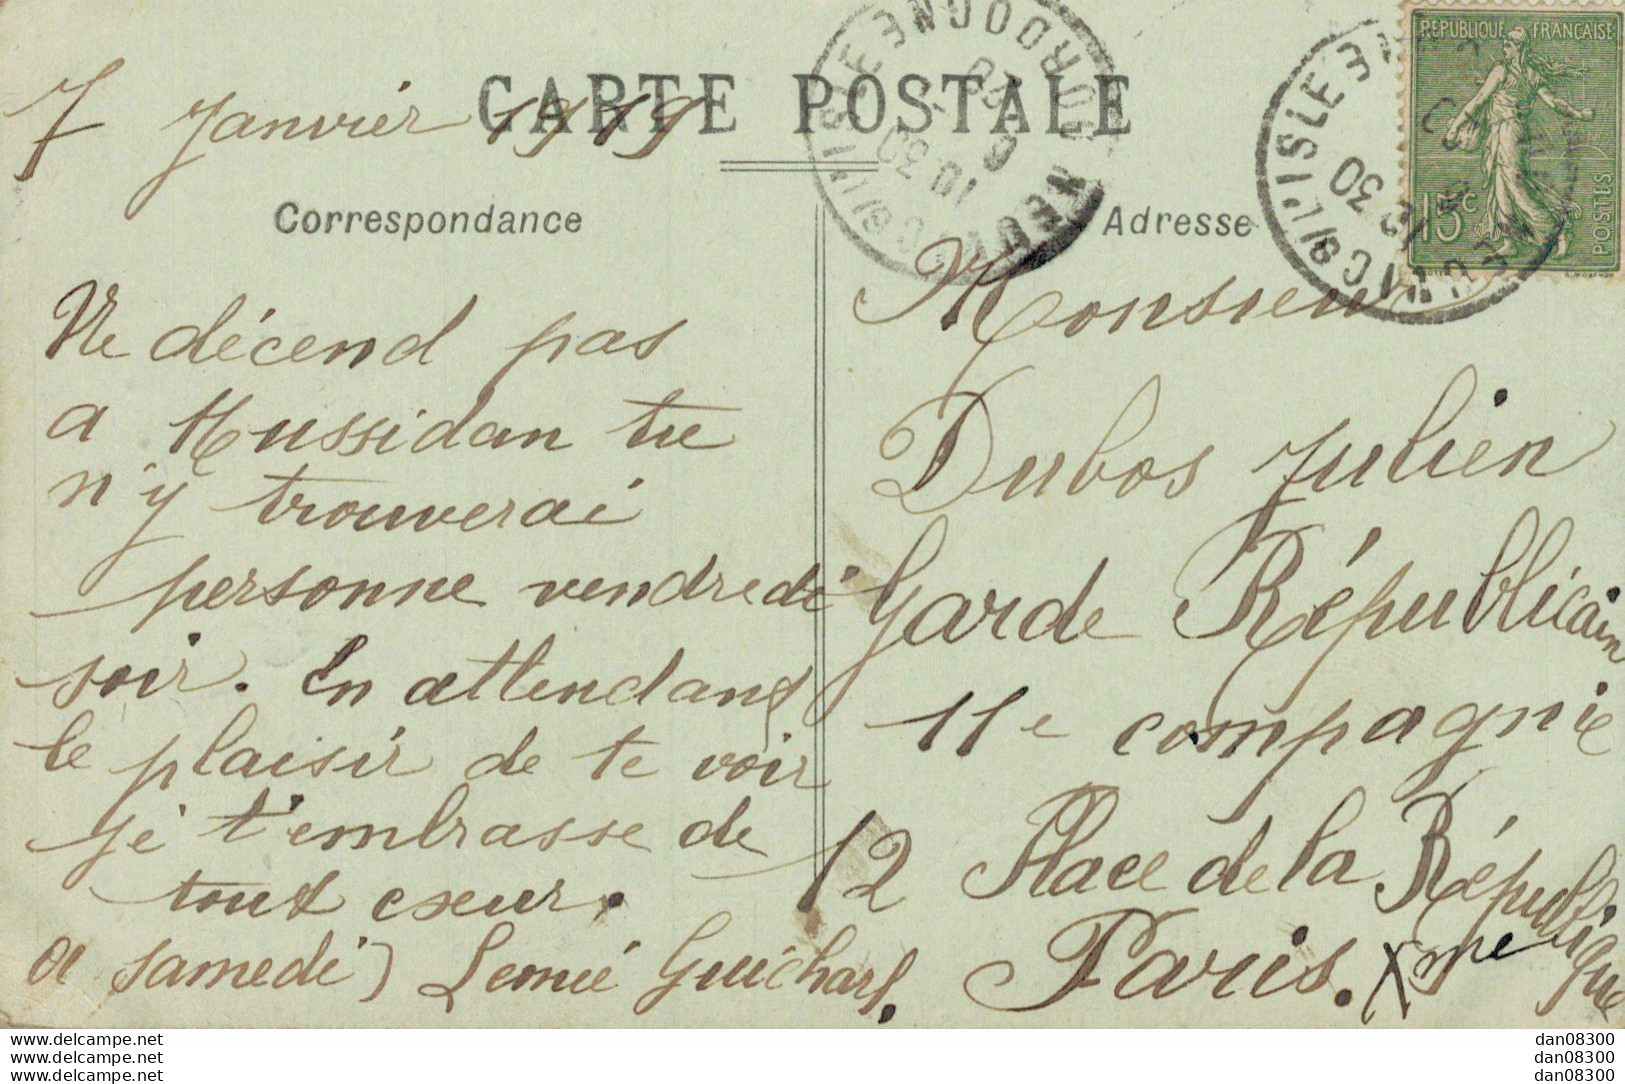 7 Janvier 1919
CARTE POSTALE
Correspondance
Ne décend pas
a Mussidan tu
n'y trouverai
personne vendredi
soir. En attendant
le plaisir de te voir
je t'embrasse de
tout cœur.
a samedi) Guichard.
Adresse
Monsieur
Dubos Julien
Garde Républicain
11e compagnie
12 Place de la République
Paris. Xme
REPUBLIQUE FRANÇAISE
15c
POSTES
NEUVIC S/ L'ISLE DORDOGNE
10 30
NEUVIC S/ L'ISLE
www.delcampe.net
www.delcampe.net
www.delcampe.net
dan08300
dan08300
dan08300